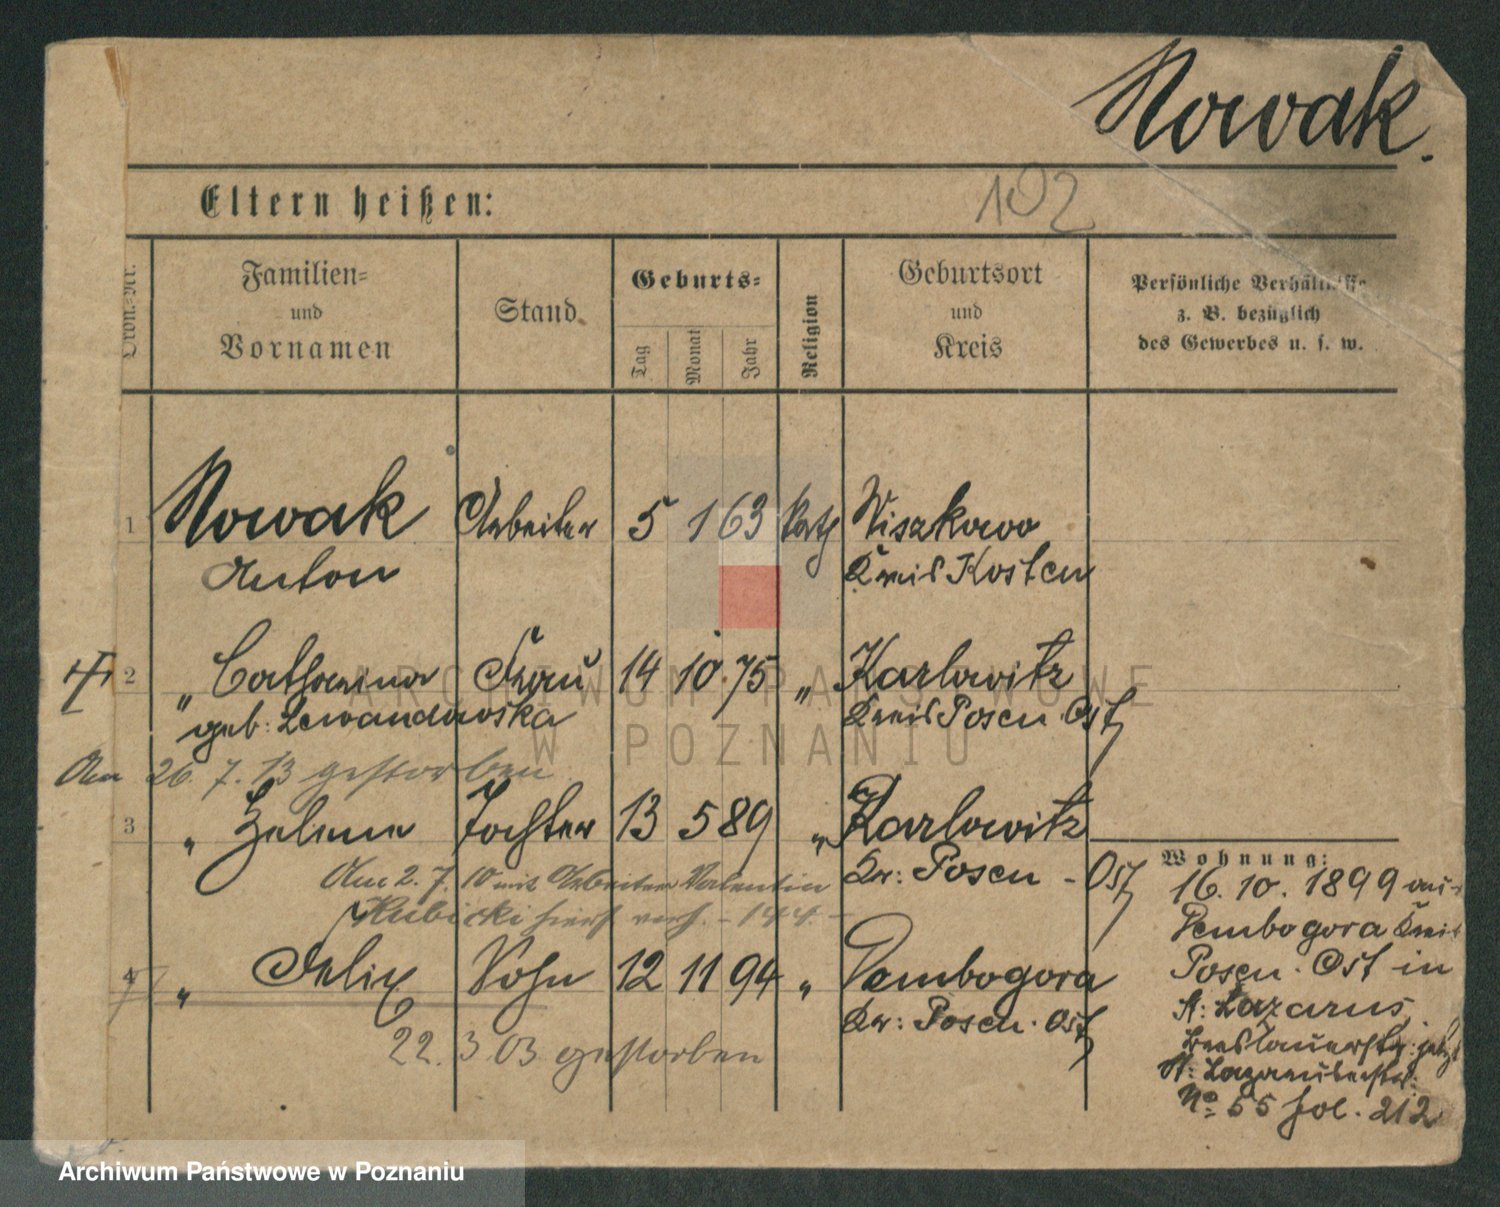 Nowak.
Eltern heißen:
102
Ordn.-Nr.
Familien-
und
Vornamen
Stand
Geburts-
Tag
Monat
Jahr
Religion
Geburtsort
und
Kreis
Persönliche Verhältnisse
z. B. bezüglich
des Gewerbes u. s. w.
1 Nowak Arbeiter 5 1 63 kath Wiszkowo
Anton Kreis Kosten
2 " Catharina Frau 14 10. 75 " Karlowitz
geb: Lewandowska Kreis Posen. Ost
Am 26. 7. 13 gestorben
3 " Helene Tochter 13 5 89 " Karlowitz
Kr: Posen - Ost
Am 2. 7. 10 mit Arbeiter Valentin
Kubicki hier verh. - 144. -
4 " Felix Sohn 12 11 94 " Dembogora
Kr: Posen. Ost
22. 3 03 gestorben
Wohnung:
16. 10. 1899 aus
Dembogora Kreis
Posen. Ost in
St: Lazarus,
Breslauerstr: jetzt
St: Lazarus
No 55 fol. 212
ARCHIWUM PAŃSTWOWE
W POZNANIU
Archiwum Państwowe w Poznaniu